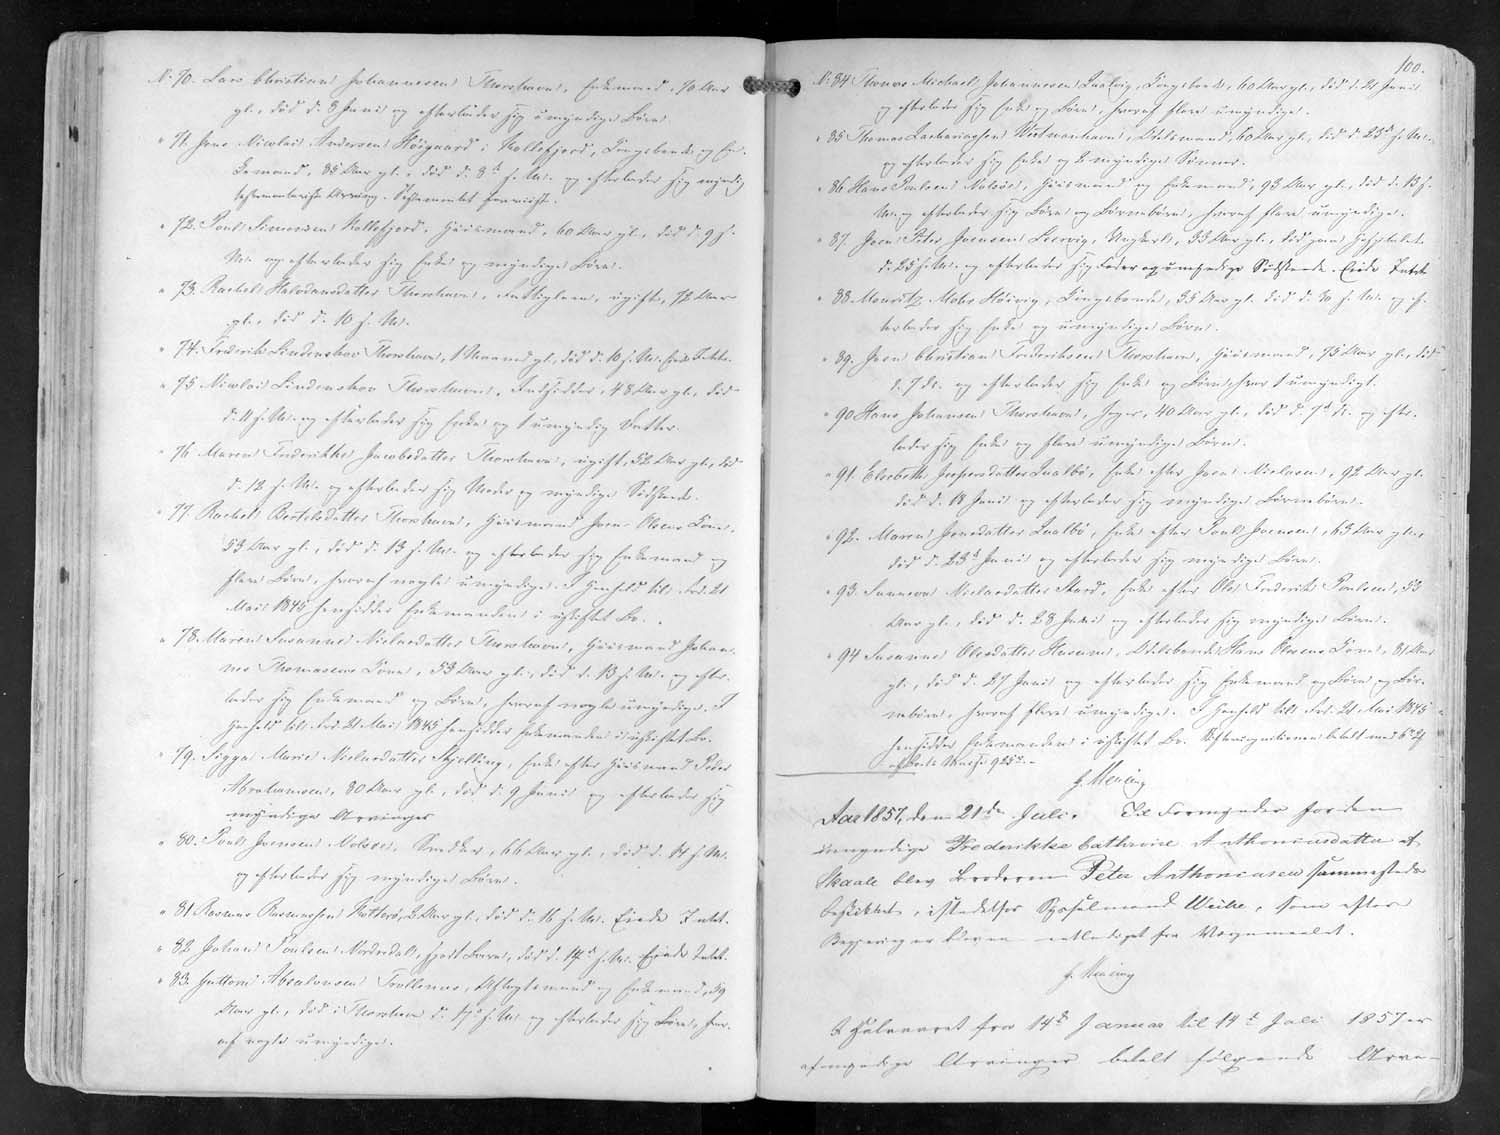 N. 70. Lars Christian Johannesen Thorshavn, Enkemand, 70 Aar
gl., död d. 8 Juni og efterlader sig umyndige Börn.
" 71. Jens Nicolai Andersen Höigaard i Kollefjord, Kongsbonde og En-
kemand, 85 Aar gl., död d. 8d s. M. og efterlader sig myndig
testamentarisk Arving. Testamentet foreviist.
" 72. Poul Simonsen Kollefjord, Huusmand, 60 Aar gl., död d. 9 s.
M. og efterlader sig Enke og myndige Börn.
" 73. Rachel Halvdansdatter Thorshavn, Fattiglem, ugift, 72 Aar
gl., död d. 10 s. M.
" 74. Frederik Lindenskov Thorshavn, 1 Maaned gl., död d. 10 s. M. Eiede Intet.
" 75 Nicolai Lindenskov Thorshavn, Indsidder, 48 Aar gl., död
d. 11 s. M. og efterlader sig Enke og 1 umyndig Datter.
" 76 Maren Frederikke Jacobsdatter Thorshavn, ugift, 52 Aar gl., död
d. 12 s. M. og efterlader sig Moder og myndige Södskende.
" 77. Rachel Bertelsdatter Thorshavn, Huusmand Joen Olsens Kone,
53 Aar gl., död d. 13 s. M. og efterlader sig Enkemand og
flere Börn, hvoraf nogle umyndige. I Henhold til Frd. 21
Mai 1845 hensidder Enkemanden i uskiftet Bo.
" 78. Maren Susanne Nielsdatter Thorshavn, Huusmand Johan-
nes Thomasens Kone, 53 Aar gl., död d. 13 s. M. og efter-
lader sig Enkemand og Börn, hvoraf nogle umyndige. I
Henhold til Frd. 21 Mai 1845 hensidder Enkemanden i uskiftet Bo.
" 79. Sigga Marie Nielsdatter Skjelling, Enke efter Huusmand Peder
Abrahamsen, 80 Aar gl., död d. 9 Juni og efterlader sig
myndige Arvinger
" 80. Poul Joensen Nolsöe, Snedker, 66 Aar gl., död d. 14 s. M.
og efterlader sig myndige Börn.
" 81 Rasmus Rasmussen Kalterö, 2 Aar gl., död d. 16 s. M. Eiede Intet.
" 82. Johan Poulsen Nordredal, spædt Barn, död d. 14d s. M. Eiede Intet.
" 83. Guttorm Absalonsen Trollenæs, Aftægtsmand og Enkemand, 59
Aar gl., död i Thorshavn d. 17d s. M. og efterlader sig Börn, hvor-
af nogle umyndige.
100.
N. 84 Thomas Michael Johannesen Qualvig, Kongsbonde, 60 Aar gl., död d. 21 Juni
og efterlader sig Enke og Börn, hvoraf flere umyndige.
" 85 Thomas Zachariassen Westmanhavn, Odelsmand, 60 Aar gl., död d. 23d s. M.,
og efterlader sig Enke og 2 myndige Sönner.
" 86 Hans Poulsen Nolsöe, Huusmand og Enkemand, 93 Aar gl., död d. 13 s.
M. og efterlader sig Börn og Börnebörn, hvoraf flere umyndige.
" 87. Joen Peter Joensen Leervig, Ungkarl, 33 Aar gl., död paa Hospitalet
d. 25 s. M. og efterlader sig Fader og umyndige Södskende. Eiede Intet
" 88 Mouritz Mohr Hoivig, Kongsbonde, 35 Aar gl. död d. 30 s. M. og ef-
terlader sig Enke og umyndige Börn.
" 89. Joen Christian Frederiksen Thorshavn, Huusmand, 75 Aar gl., död
d. 7 ds. og efterlader sig Enke og Börn, hvoraf 1 umyndigt.
" 90 Hans Johansen Thorshavn, Jæger, 40 Aar gl., död d. 7d ds. og efter-
lader sig Enke og flere umyndige Börn.
" 91. Elsebeth Jespersdatter Qualbö, Enke efter Joen Nielsen, 92 Aar gl.
död d. 18 Juni og efterlader sig myndige Börnebörn.
" 92. Maren Jensdatter Qualbö, Enke efter Poul Joensen, 63 Aar gl.,
död d. 23d Juni og efterlader sig myndige Börn.
" 93. Sunneva Nielsdatter Skard, Enke efter Ole Frederik Poulsen, 53
Aar gl., död d. 28 Juni og efterlader sig myndige Börn.
" 94 Susanne Olesdatter Husum, Odelsbonde Hans Olsens Kone, 81 Aar
gl., död d. 27 Juni og efterlader sig Enkemand og Börn og Bör-
nebörn, hvoraf flere umyndige. I Henhold til Frd. 21 Mai 1845
hensidder Enkemanden i uskiftet Bo.
H. Müller
Aar 1857, den 21de Juli. Til Formynder for den
umyndige Frederikke Cathrine Anthoniusdatter af
Skaale blev Broderen Peter Anthoniusen sammesteds
beskikket, istedetfor Sysselmand Weihe, som efter
Begjering er bleven entlediget fra Værgemaalet.
H. Müller
I Halvaaret fra 14de Januar til 14d Juli 1857 er
af myndige Arvinger betalt fölgende Arve-